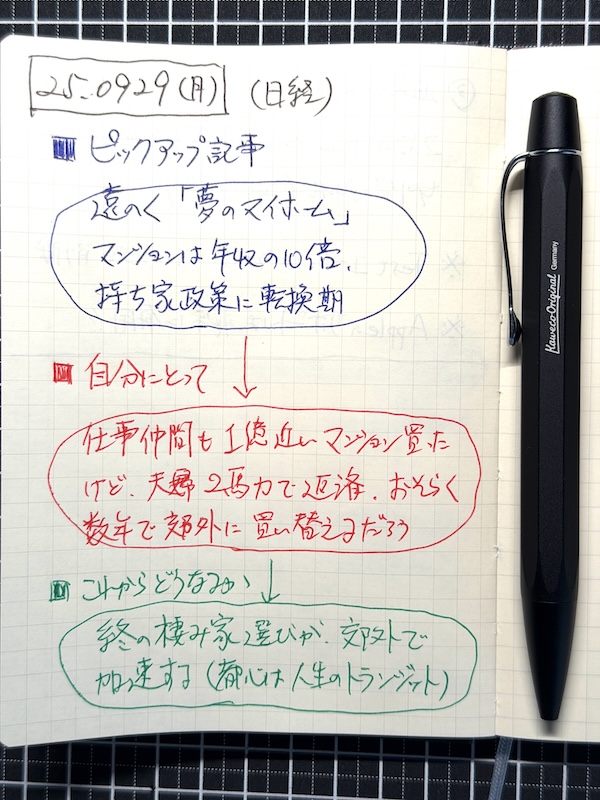 25.0929(月) (日経)
ピックアップ記事
遠のく「夢のマイホーム」
マンションは年収の10倍、
持ち家政策に転換期
自分にとって
仕事仲間も1億近いマンション買った
けど、夫婦2馬力で返済、おそらく
数年で郊外に買い替えるだろう
これからどうなるか
終の棲み家選びが、郊外で
加速する(都心は人生のトランジット)
Kaweco Original Germany